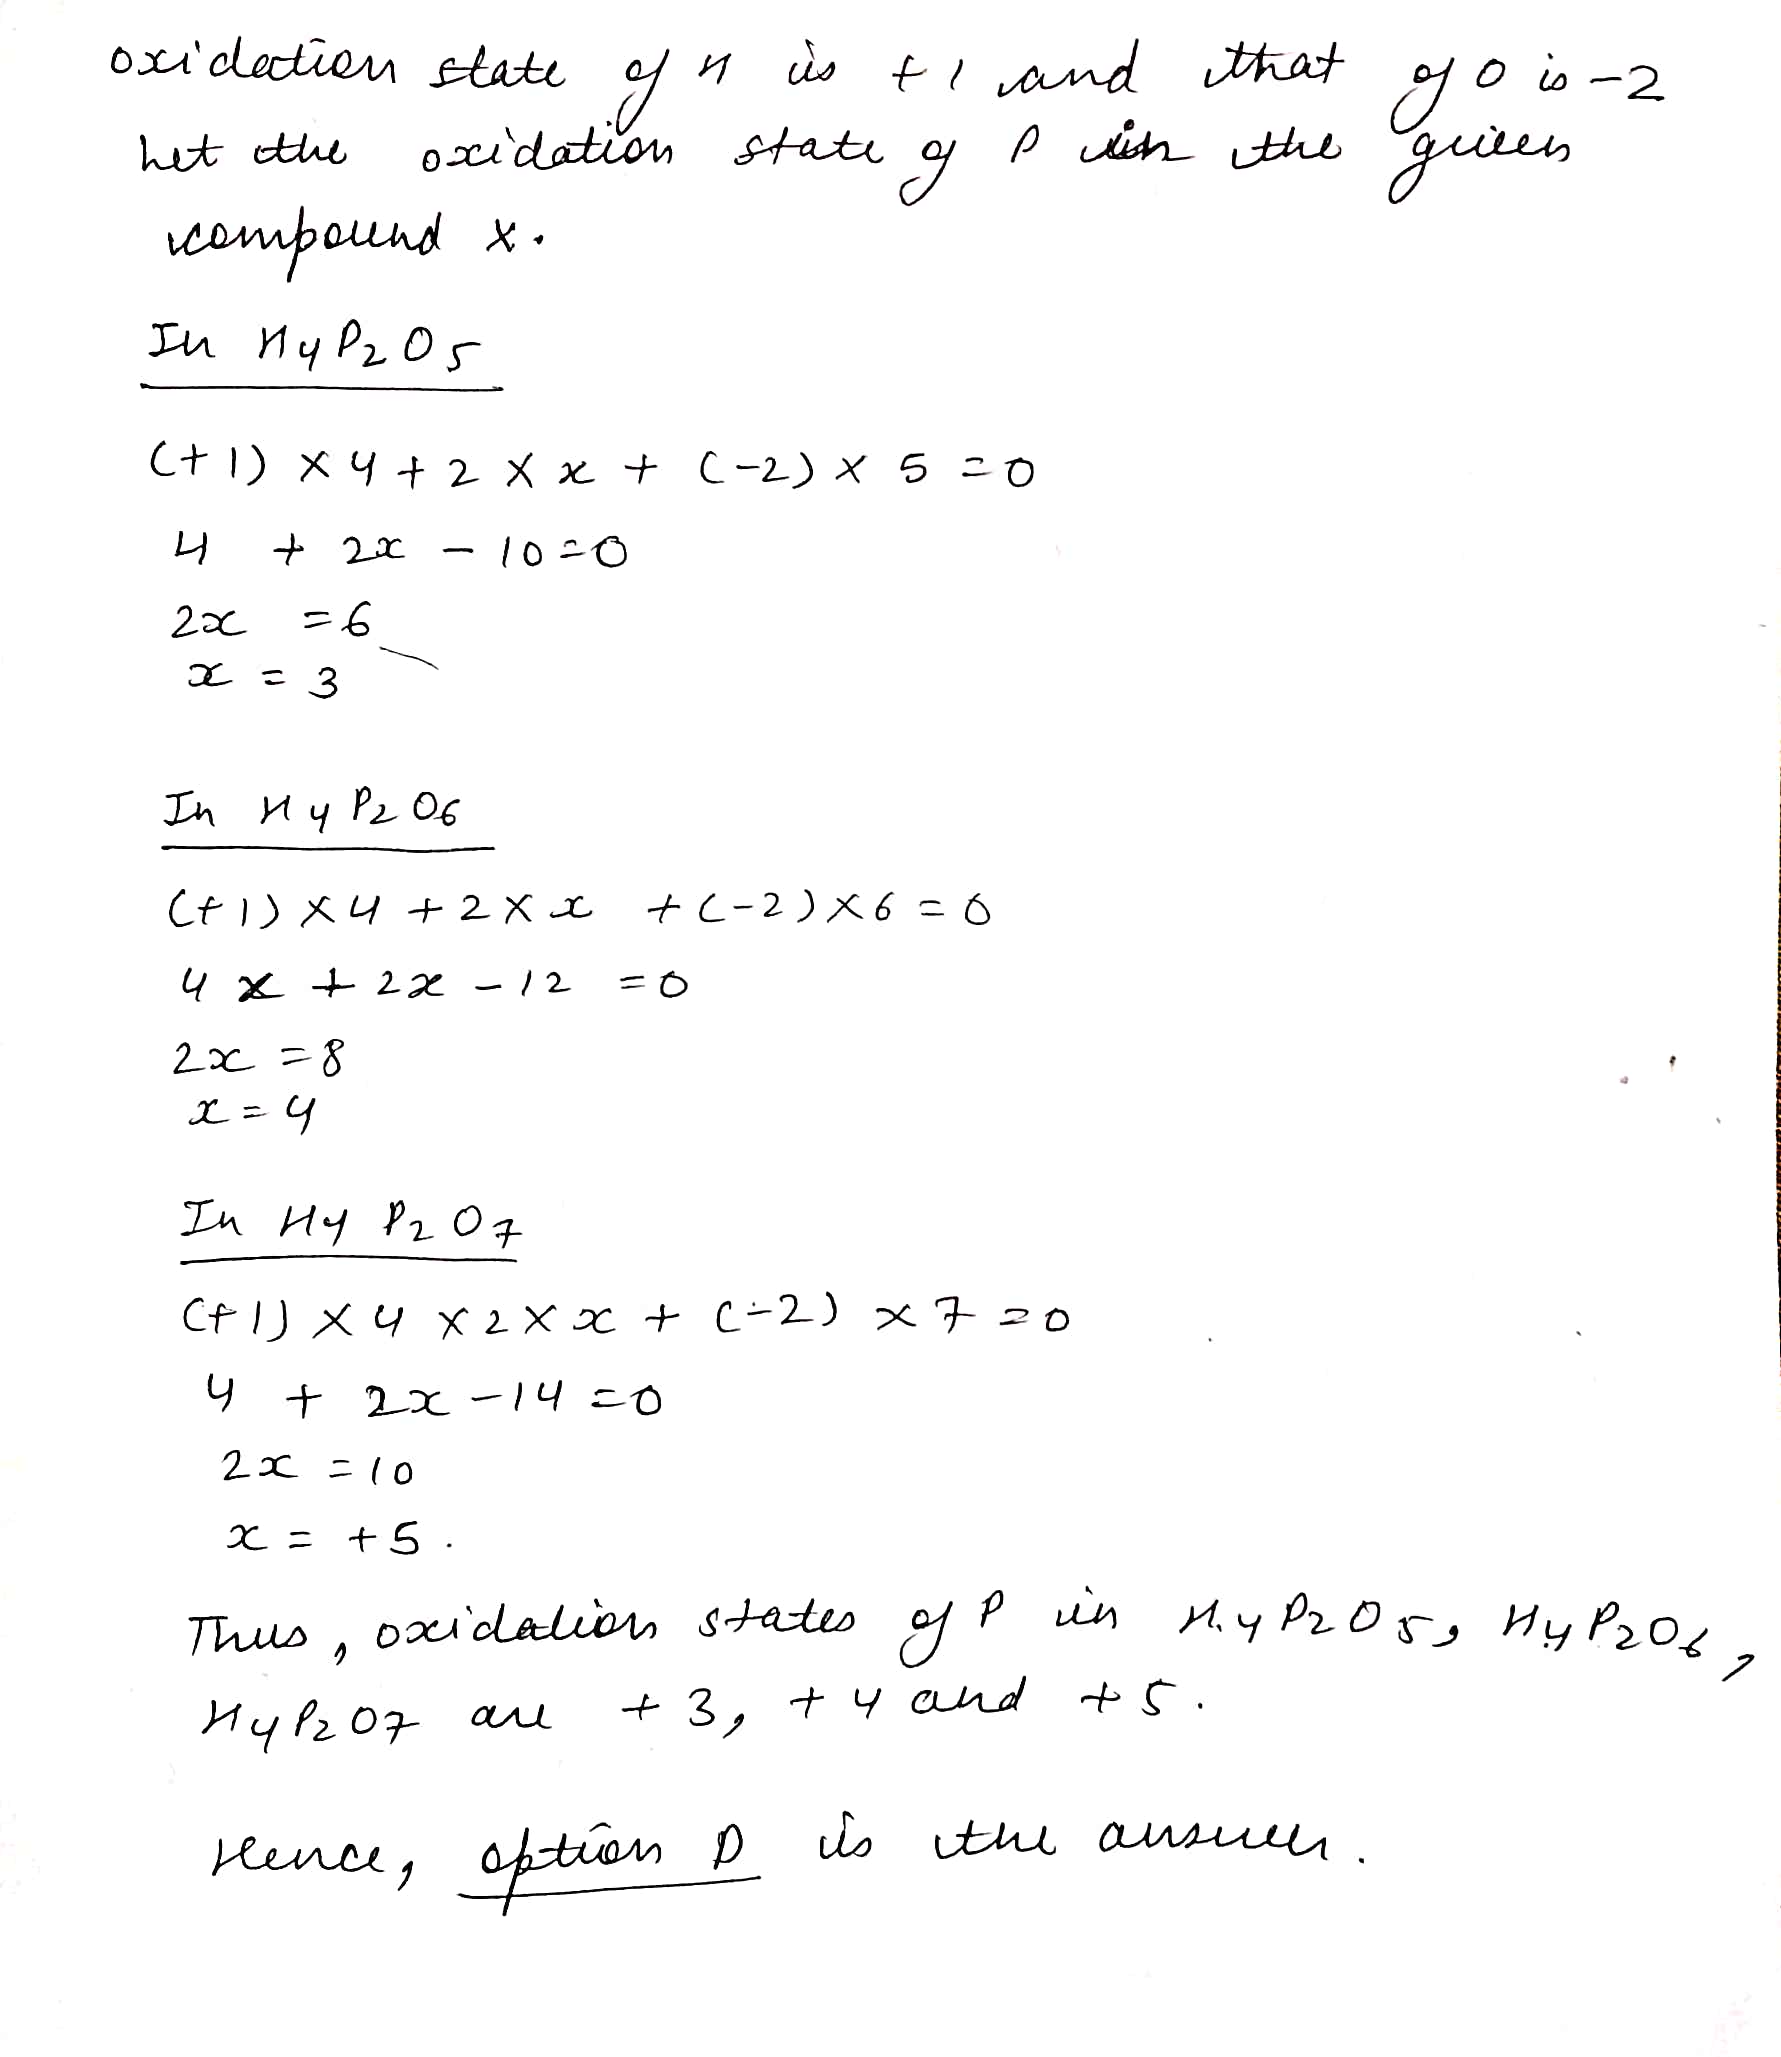 oxidation state of H is +1 and that of O is -2
Let the oxidation state of P in the given
compound x.
In H4P2O5
(+1) × 4 + 2 × x + (-2) × 5 = 0
4 + 2x - 10 = 0
2x = 6
x = 3
In H4P2O6
(+1) × 4 + 2 × x + (-2) × 6 = 0
4x + 2x - 12 = 0
2x = 8
x = 4
In H4P2O7
(+1) × 4 × 2 × x + (-2) × 7 = 0
4 + 2x - 14 = 0
2x = 10
x = +5.
Thus, oxidation states of P in H4P2O5, H4P2O6,
H4P2O7 are +3, +4 and +5.
Hence, option D is the answer.